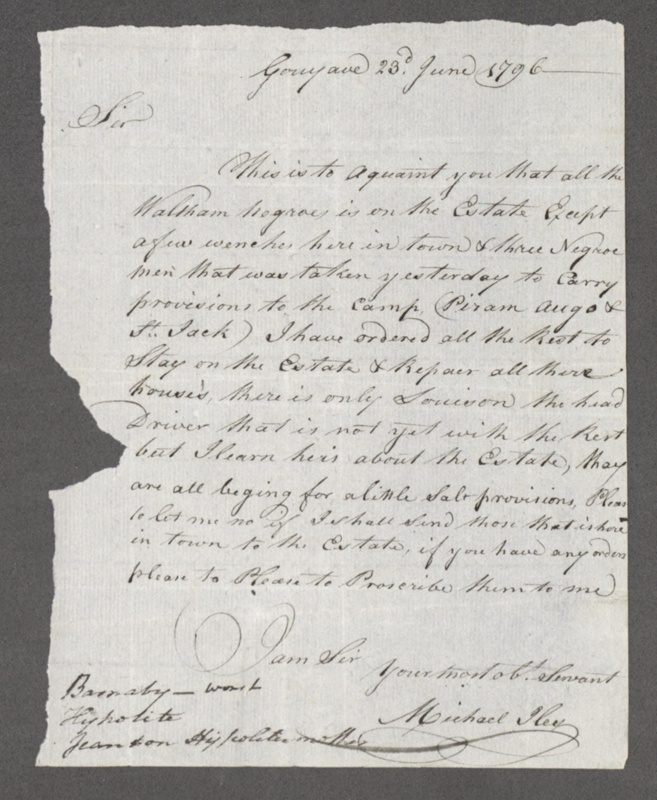 Gouyave 23d. June 1796
Sir
This is to aquaint you that all the
Waltham Negroes is on the Estate Except
a few wenches here in town & three Negroe
men that was taken yesterday to Carry
provisions to the Camp, (Piram Augo &
St. Jack) I have ordered all the Rest to
Stay on the Estate & Repair all there
houses, there is only Louison the head
Driver that is not yet with the Rest
but I learn heis about the Estate, they
are all beging for a little Salt provisions, Pleas
to let me no if I shall send those that is here
in town to the Estate, if you have any orders
please to Please to Proscribe them to me
I am Sir
Your most obt. Servant
Michael Iles
Barnaby — worst
Hipolite
Jeanton Hippolites mother